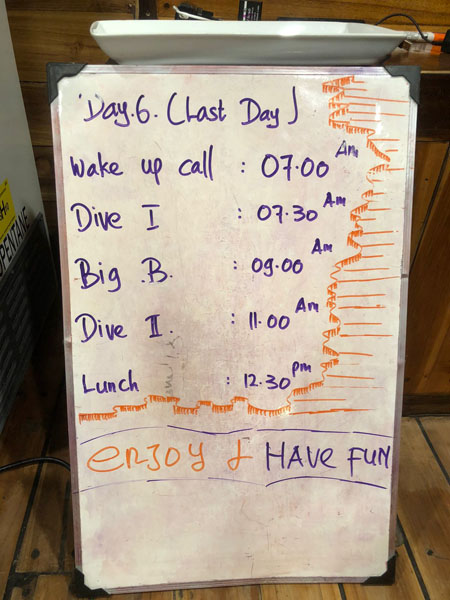 Day.6. (Last Day)
Wake up call : 07.00 Am
Dive I : 07.30 Am
Big .B. : 09.00 Am
Dive II. : 11.00 Am
Lunch : 12.30 pm
enjoy & HAVE FUN
PENTANE